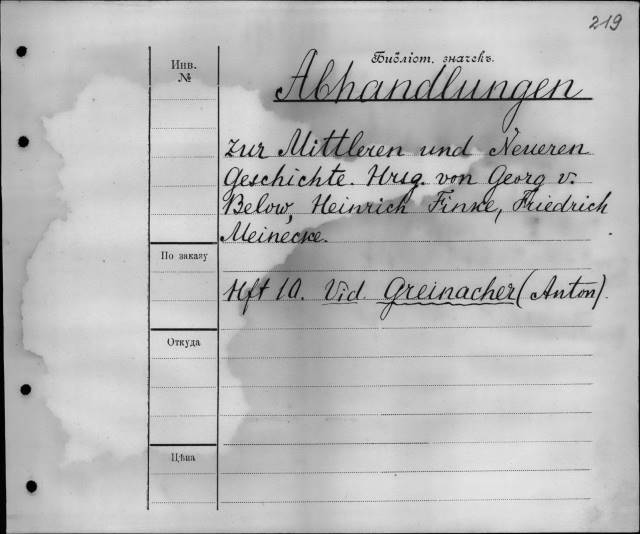 219
Инв.
№
Библіот. значекъ.
Abhandlungen
zur Mittleren und Neueren
Geschichte. Hrsg. von Georg v.
Below, Heinrich Finke, Friedrich
Meinecke.
По заказу
Hft 10. Vid. Greinacher (Anton).
Откуда
Цѣна